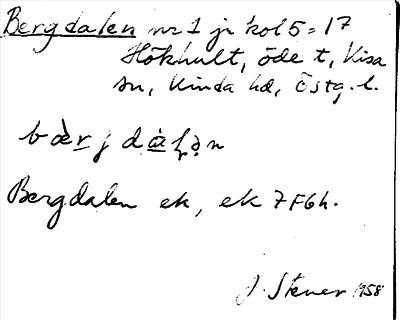 Bergdalen nr 1 jr kol 5 = 17
Hökhult, öde t, Kisa
sn, Kinda hd, Östg. l.
Bergdalen ek, ek 7F6h.
J. Stener 1958